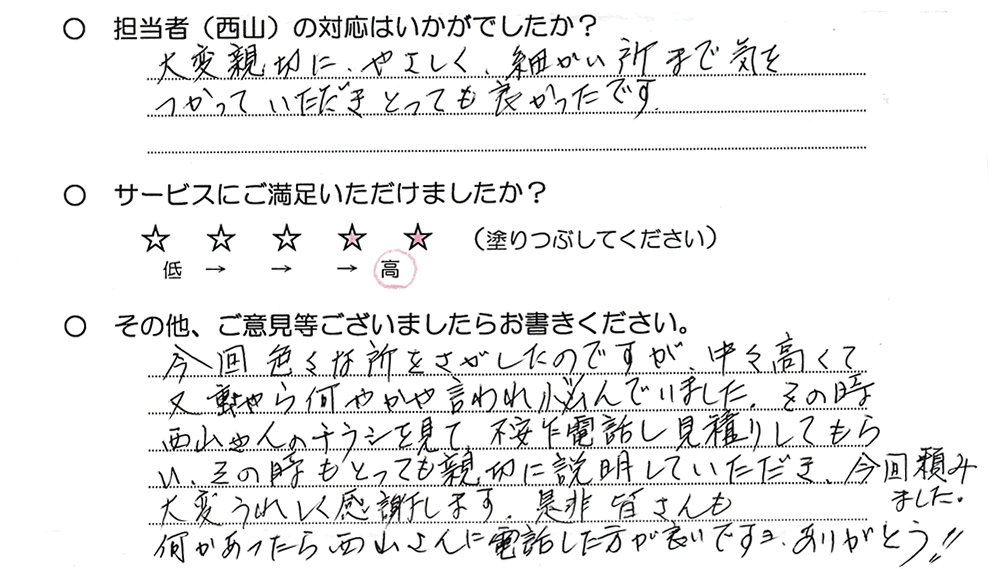 ○ 担当者（西山）の対応はいかがでしたか？
大変親切に、やさしく、細かい所まで気を
つかっていただきとっても良かったです。
○ サービスにご満足いただけましたか？
☆ ☆ ☆ ★ ★ （塗りつぶしてください）
低 → → → 高
○ その他、ご意見等ございましたらお書きください。
今回色々な所をさがしたのですが、中々高くて
又 やら何やかや言われ悩んでいました。その時
西山さんのチラシを見て、不安乍電話し見積りしてもら
い、その時もとっても親切に説明していただき、今回頼み
ました。
大変うれしく感謝します。是非皆さんも
何かあったら西山さんに電話した方が良いですヨ、ありがとう!!